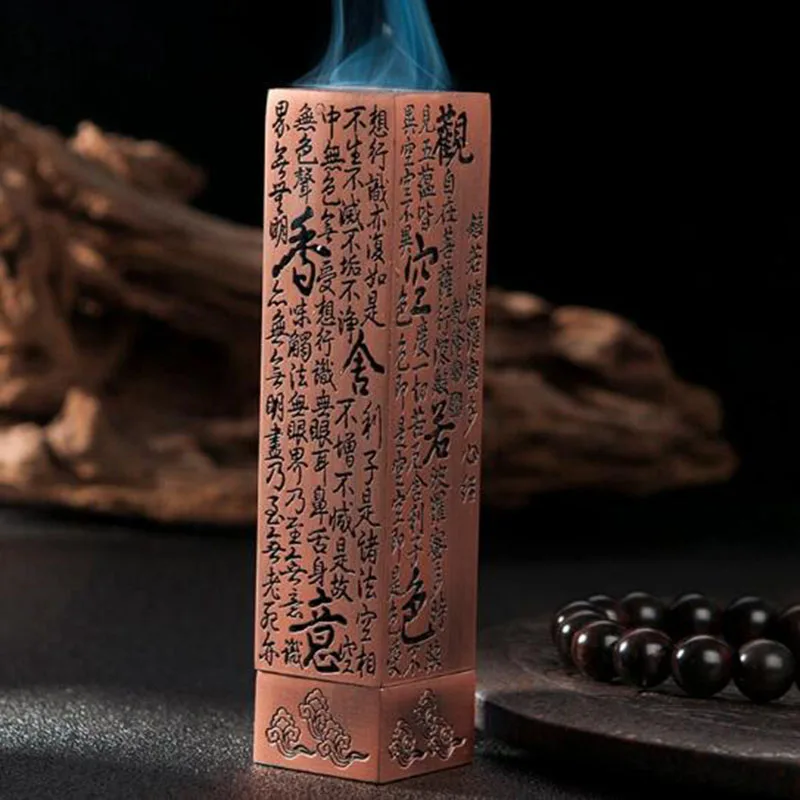 般若波羅蜜多心經
觀自在菩薩行深般若波羅蜜多時照
見五蘊皆空度一切苦厄舍利子色不
異空空不異色色即是空空即是色受
想行識亦復如是舍利子是諸法空相
不生不滅不垢不净不增不減是故空
中無色無受想行識無眼耳鼻舌身意
無色聲香味觸法無眼界乃至無意識
界無無明亦無無明盡乃至無老死亦